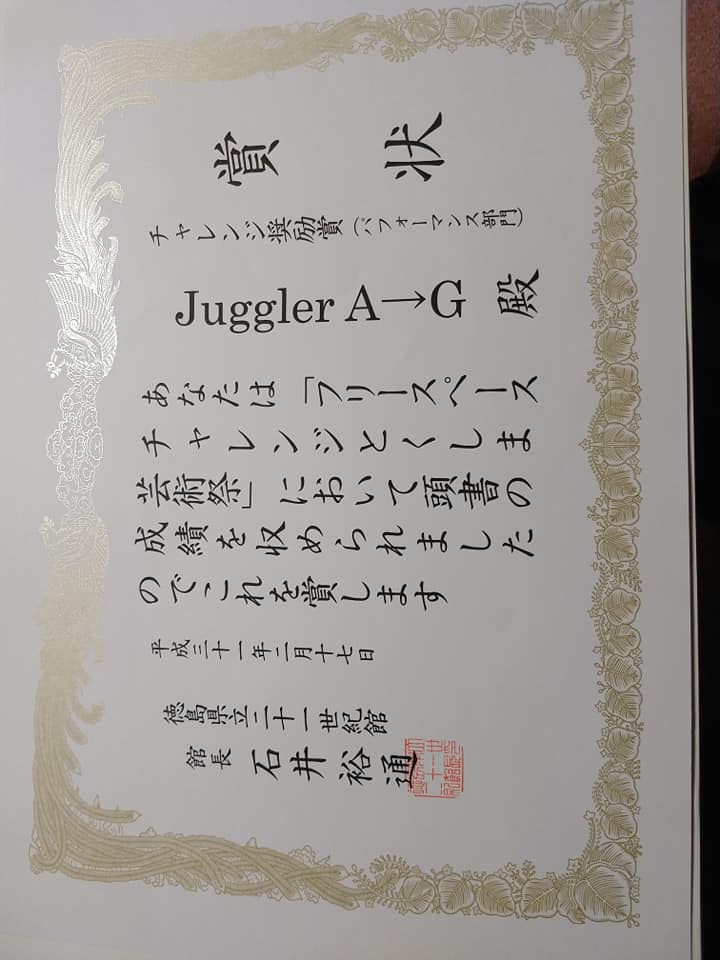 賞状
チャレンジ奨励賞(パフォーマンス部門)
Juggler A→G 殿
あなたは「フリースペース
チャレンジとくしま
芸術祭」において頭書の
成績を収められました
のでこれを賞します
平成三十一年二月十七日
徳島県立二十一世紀館
館長 石井裕通